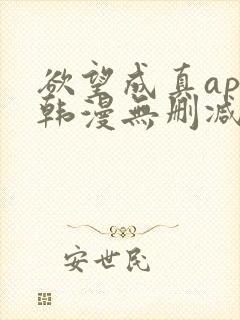 欲望成真ap
韩漫無删减
安世民